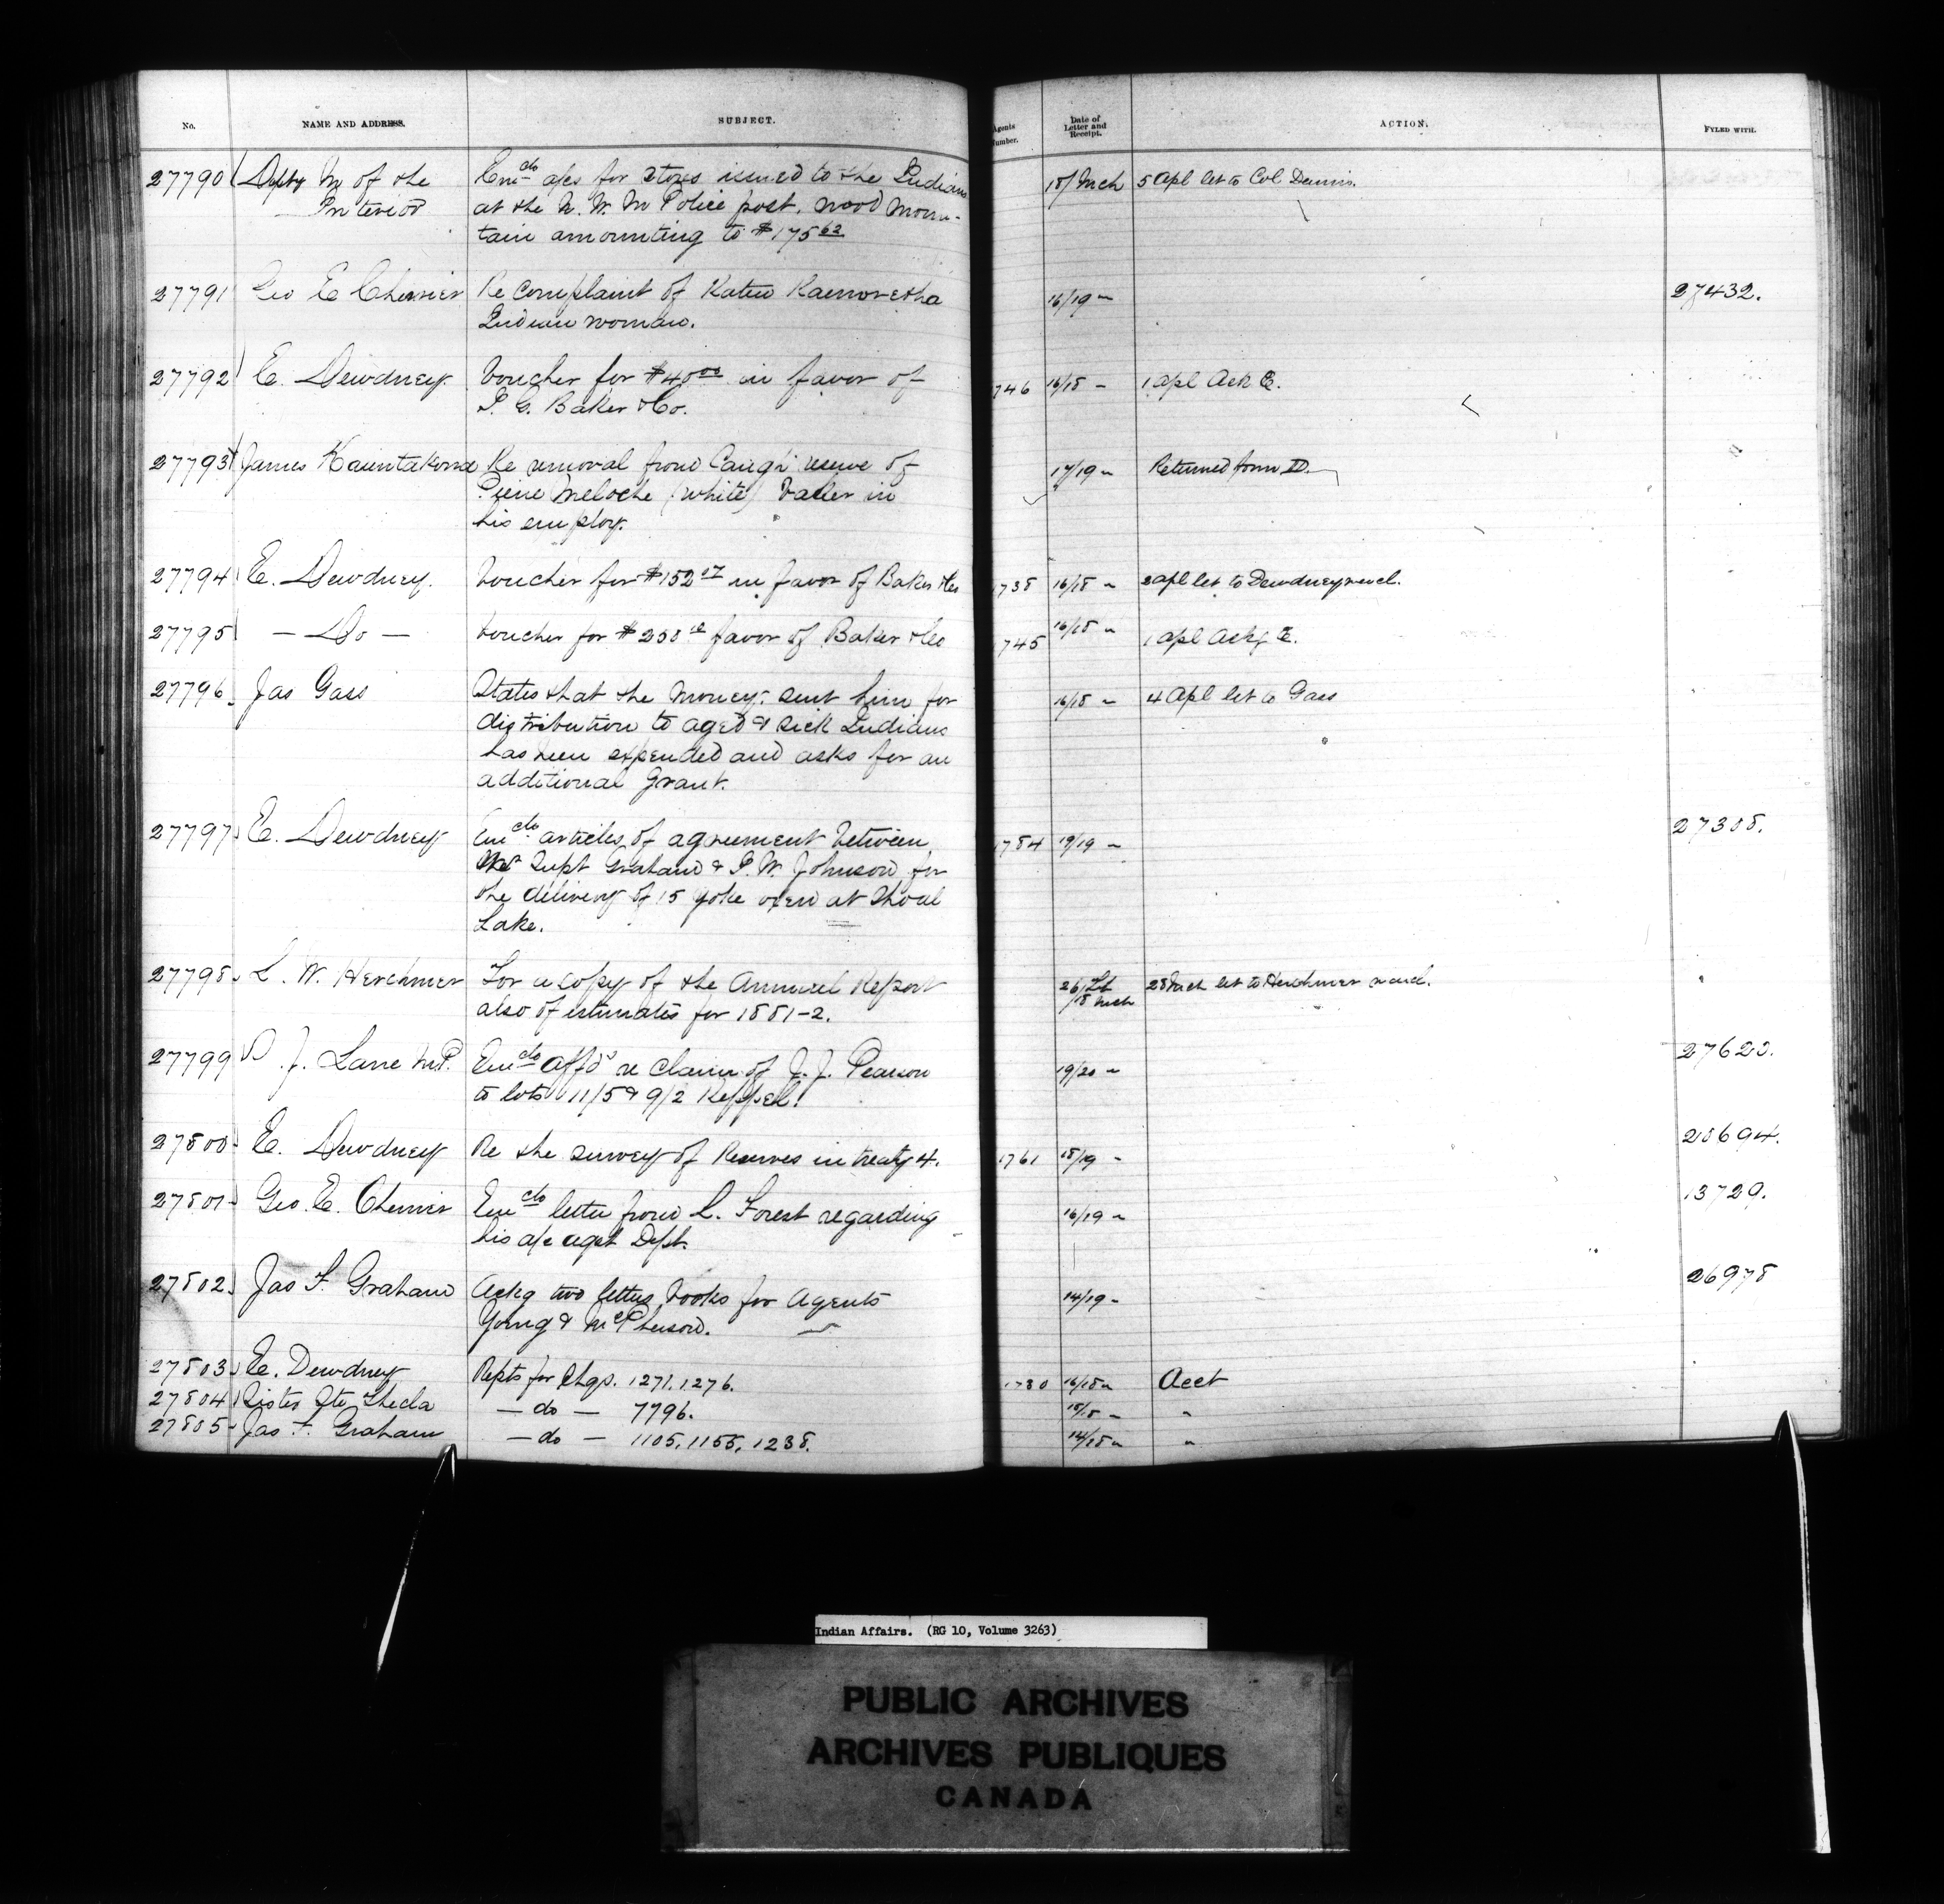 No. NAME AND ADDRESS. SUBJECT. Agents Number. Date of Letter and Receipt. ACTION. FYLED WITH.
27790 Depty M of the Encdo a/cs for stores issued to the Indians 18/ Mch 5 Apl let to Col Dennis.
Interior at the N. W. M Police post, Wood Moun-
tain amounting to $175 62
27791 Geo E Cherrier Re complaint of 16/19 " 27432.
Indian woman.
27792 E. Dewdney Voucher for $40 00 in favor of 746 16/18 " 1 Apl Ack E.
I. G. Baker & Co.
27793 James Re removal from Caugh reserve of 17/19 " Returned form D.
Pierre Meloche (white) baker in
his employ.
27794 E. Dewdney. Voucher for $152 17 in favor of Baker & Co 738 16/18 " 2 Apl let to Dewdney
27795 — Do — Voucher for favor of Baker & Co 745 16/18 " 1 Apl Ackg E.
27796 Jas Gass States that the money sent him for 16/18 " 4 Apl let to Gass
distribution to aged & sick Indians
has been expended and asks for an
additional Grant.
27797 E. Dewdney Encdo articles of agreement between 1784 19/19 " 27308.
Supt Graham & P. W. Johnson for
the delivery of 15 yoke oxen at Shoal
Lake.
27798 L. W. Herchmer For a copy of the Annual Report 26/ 28 Mch let to Herchmer
also of estimates for 1881-2. /18 Mch
27799 J. Lane M.P. Encdo affds re claim of J. J. Pearson 19/20 " 27620.
to lots 11/5 & 9/2 Keppel.
27800 E. Dewdney Re the survey of Reserves in treaty 4. 1761 18/19 " 20694.
27801 Geo. E. Cherrier Encdo letter from L. Forest regarding 16/19 " 13729.
his a/c agst Dept.
27802 Jas F. Graham Ackg two letter books for Agents 14/19 " 26978
Young & McPherson.
27803 E. Dewdney Rcpts for Chqs. 1271, 1276. 1780 16/18 " Acct
27804 Sister Ste Thecla — do — 7796. 15/18 " "
27805 Jas F. Graham — do — 1105, 1155, 1238. 14/18 " "
Indian Affairs. (RG 10, Volume 3263)
PUBLIC ARCHIVES
ARCHIVES PUBLIQUES
CANADA